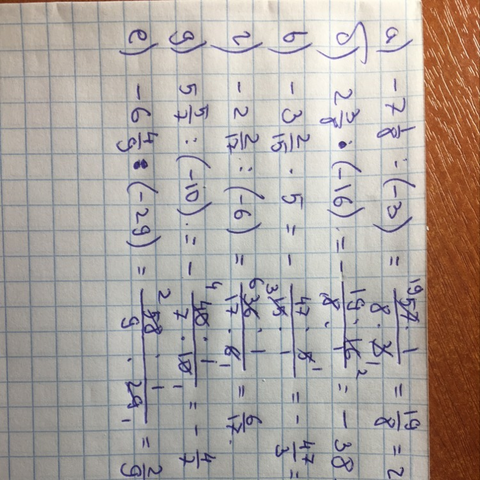 а) -7 1/8 : (-3) = 57 · 1 / 8 · 3 = 19/8 = 2
б) 2 3/8 · (-16) = - 19 · 16 / 8 = -38
в) -3 2/15 · 5 = - 47 · 5 / 15 · 1 = - 47/3 =
г) -2 2/17 : (-6) = 36 · 1 / 17 · 6 = 6/17.
д) 5 5/7 : (-10) = - 40 · 1 / 7 · 10 = - 4/7
е) -6 4/9 : (-29) = 58 · 1 / 9 · 29 = 2/9